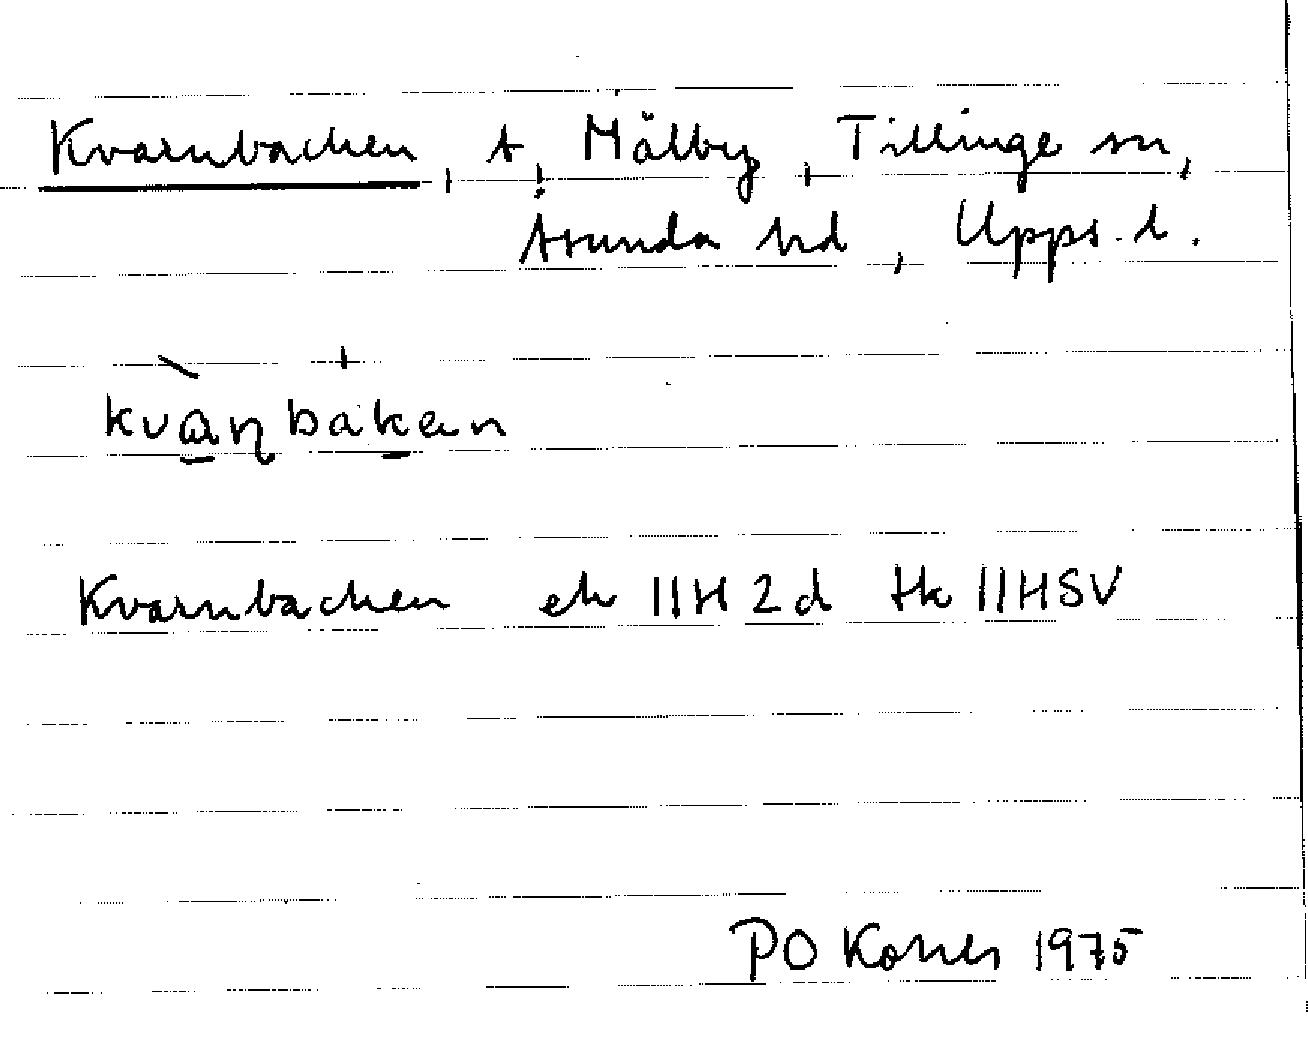 Kvarnbacken, t, Mälby, Tillinge sn,
Åsunda hd, Upps. l.
kvaɳbakan
Kvarnbacken ek 11H 2d tk 11HSV
PO 1975